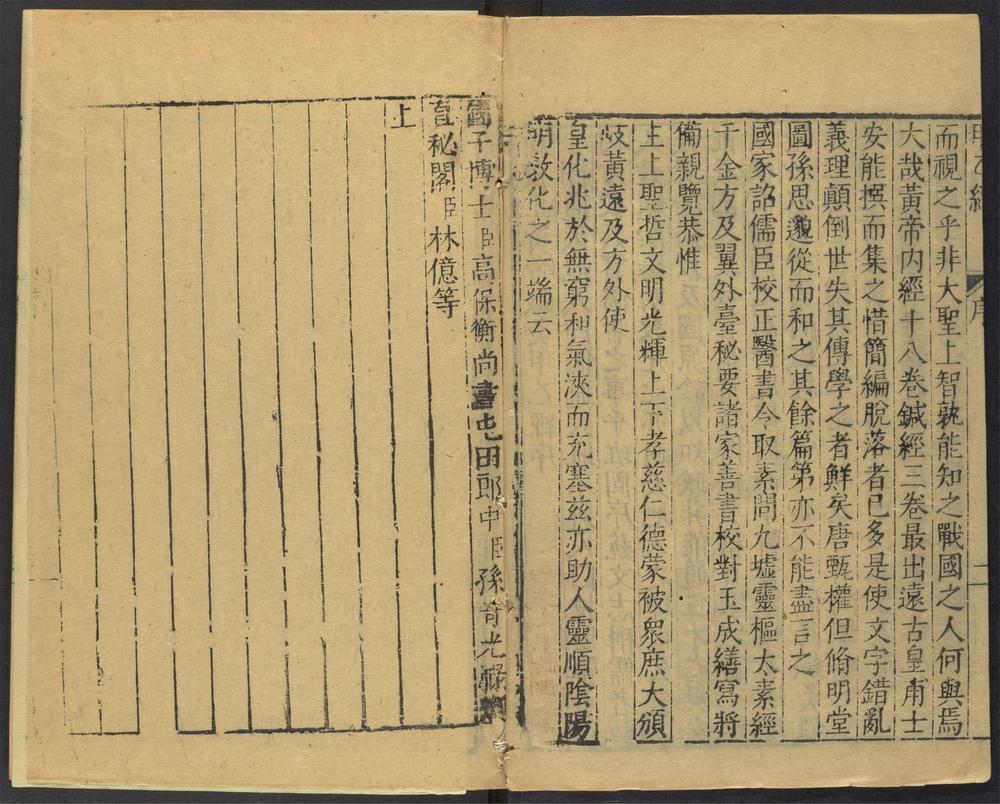 甲乙經 序 二
而視之乎非大聖上智孰能知之戰國之人何與焉
大哉黃帝內經十八卷鍼經三卷最出遠古皇甫士
安能撰而集之惜簡編脫落者已多是使文字錯亂
義理顛倒世失其傳學之者鮮矣唐甄權但脩明堂
圖孫思邈從而和之其餘篇第亦不能盡言之
國家詔儒臣校正醫書今取素問九墟靈樞太素經
千金方及翼外臺秘要諸家善書校對玉成繕寫將
備親覽恭惟
主上聖哲文明光輝上下孝慈仁德蒙被衆庶大頒
岐黃遠及方外使
皇化兆於無窮和氣浹而充塞兹亦助人靈順陰陽
明敎化之一端云
國子博士臣高保衡尚書屯田郎中臣孫奇光祿
直秘閣臣林億等
上